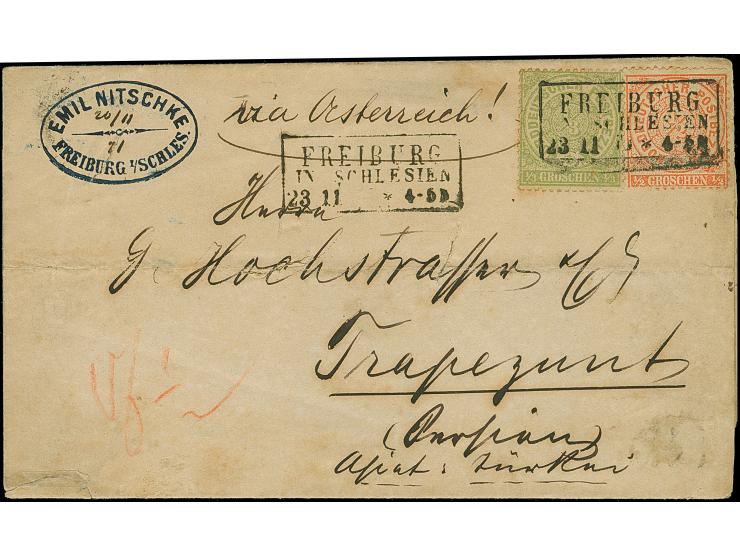 EMIL NITSCHKE
20/11
71
FREIBURG I/SCHLES.
via Oesterreich!
FREIBURG
IN SCHLESIEN
23 11 * 4-5N
FREIBURG
IN SCHLESIEN
23 11 * 4-5N
1/3 GROSCHEN 1/3
1/2 GROSCHEN 1/2
Herrn
G. Hochstrasser &
Trapezunt
(Persien)
Asiat: Türkei